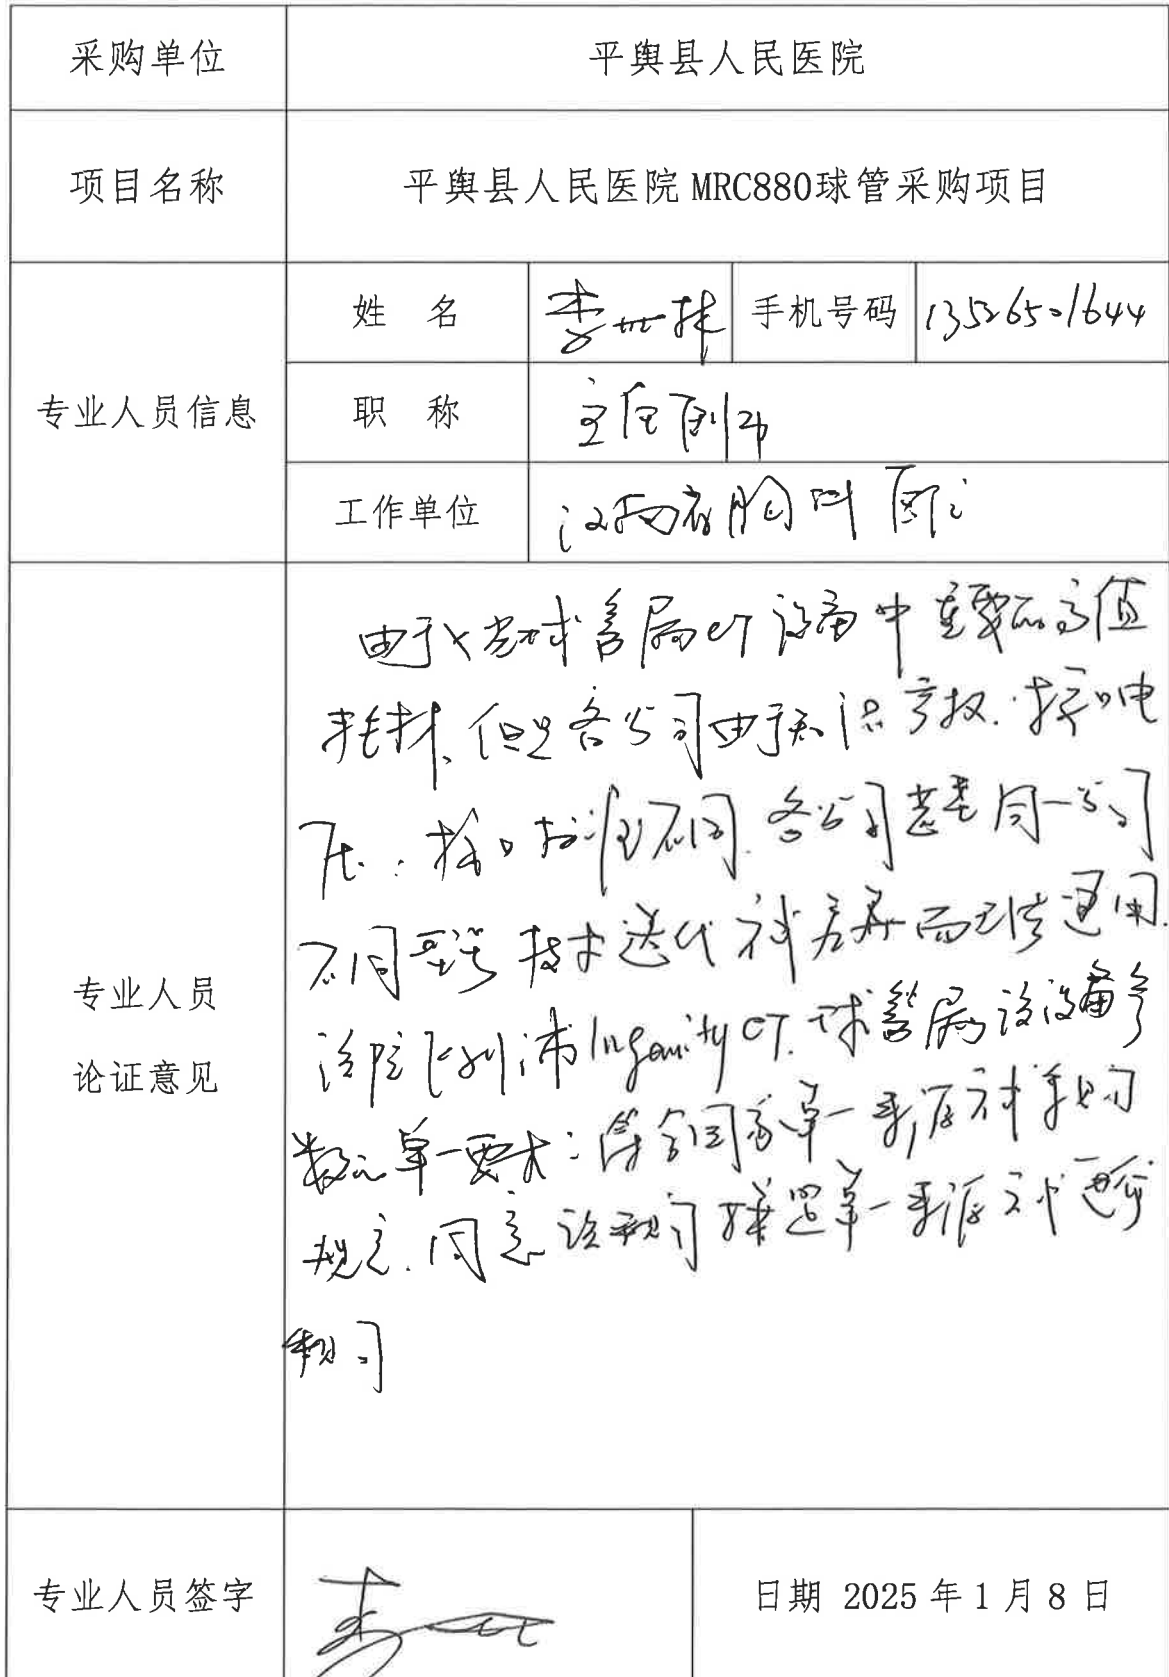 采购单位 平舆县人民医院
项目名称 平舆县人民医院MRC880球管采购项目
专业人员信息
姓 名 李 手机号码 13526501644
职 称 主任医师
工作单位 河南省胸科医院
专业人员
论证意见
由于X光球管属CT设备中重要的高值
耗材、但是各公司由于知识产权.接口电
压:接口标准不同.各公司甚至同一公司
不同型号技术迭代式差异而无法通用.
该院飞利浦Ingenuity CT.球管属该设备参
数的单一要求:符合国家单一来源方式采购
规定.同意该采购单一来源方式进行
采购
专业人员签字
日期 2025年1月8日